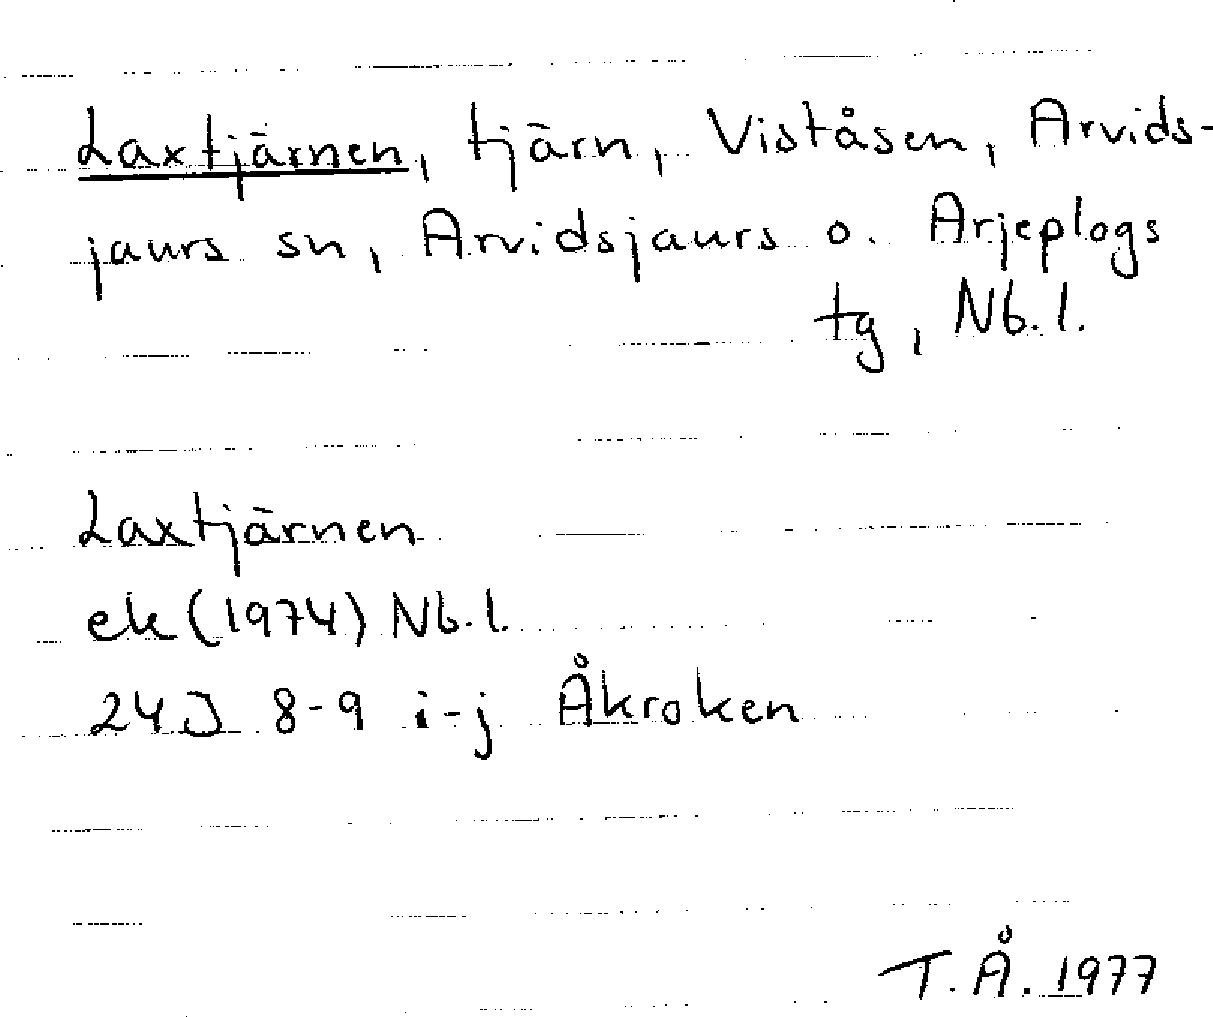 Laxtjärnen, tjärn, Viståsen, Arvids-
jaurs sn, Arvidsjaurs o. Arjeplogs
tg, Nb. l.
Laxtjärnen
ek (1974) Nb. l.
24J 8-9 i-j Åkroken
T. Å. 1977